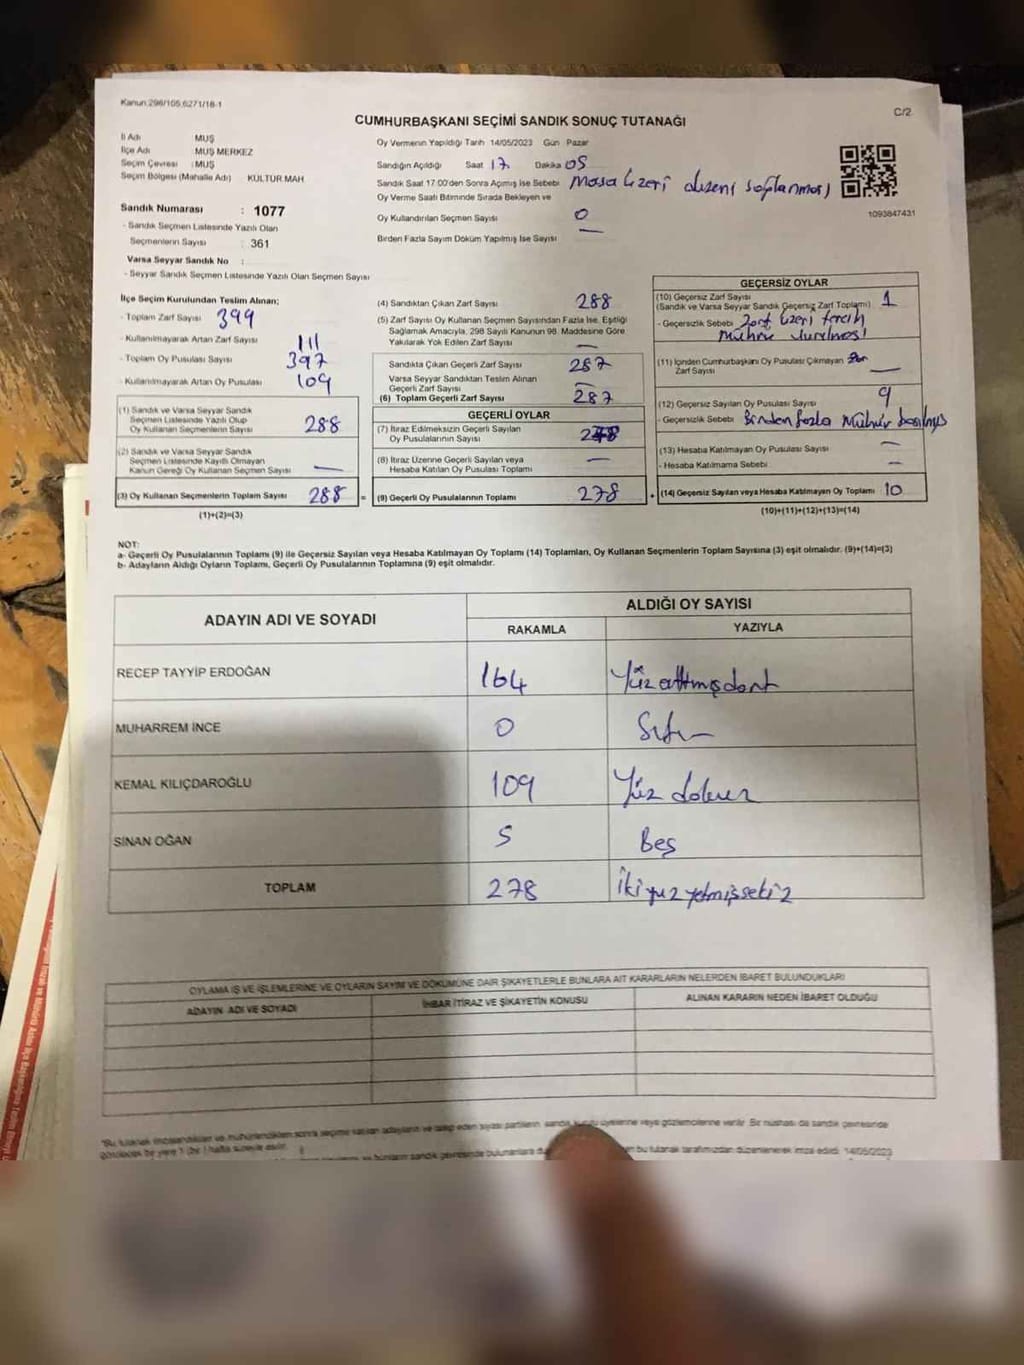 Kanun:298/105,6271/18-1
C/2
CUMHURBAŞKANI SEÇİMİ SANDIK SONUÇ TUTANAĞI
İl Adı : MUŞ
İlçe Adı : MUŞ MERKEZ
Seçim Çevresi : MUŞ
Seçim Bölgesi (Mahalle Adı) : KÜLTÜR MAH.
Oy Vermenin Yapıldığı Tarih 14/05/2023 Gün Pazar
Sandığın Açıldığı Saat 17 Dakika 05
Sandık Saat 17:00'den Sonra Açımış İse Sebebi Masa üzeri düzeni sağlanması
Oy Verme Saati Bitiminde Sırada Bekleyen ve
Oy Kullandırılan Seçmen Sayısı 0
Birden Fazla Sayım Döküm Yapılmış İse Sayısı —
1093847431
Sandık Numarası : 1077
- Sandık Seçmen Listesinde Yazılı Olan
Seçmenlerin Sayısı : 361
Varsa Seyyar Sandık No :
- Seyyar Sandık Seçmen Listesinde Yazılı Olan Seçmen Sayısı
İlçe Seçim Kurulundan Teslim Alınan;
- Toplam Zarf Sayısı 399
- Kullanılmayarak Artan Zarf Sayısı 111
- Toplam Oy Pusulası Sayısı 397
- Kullanılmayarak Artan Oy Pusulası 109
(1) Sandık ve Varsa Seyyar Sandık
Seçmen Listesinde Yazılı Olup
Oy Kullanan Seçmenlerin Sayısı 288
(2) Sandık ve Varsa Seyyar Sandık
Seçmen Listesinde Kayıtlı Olmayan
Kanun Gereği Oy Kullanan Seçmen Sayısı —
(3) Oy Kullanan Seçmenlerin Toplam Sayısı 288 =
(1)+(2)=(3)
(4) Sandıktan Çıkan Zarf Sayısı 288
(5) Zarf Sayısı Oy Kullanan Seçmen Sayısından Fazla İse, Eşitliği
Sağlamak Amacıyla, 298 Sayılı Kanunun 98. Maddesine Göre
Yakılarak Yok Edilen Zarf Sayısı —
Sandıkta Çıkan Geçerli Zarf Sayısı 287
Varsa Seyyar Sandıktan Teslim Alınan
Geçerli Zarf Sayısı —
(6) Toplam Geçerli Zarf Sayısı 287
GEÇERLİ OYLAR
(7) İtiraz Edilmeksizin Geçerli Sayılan
Oy Pusulalarının Sayısı 278
(8) İtiraz Üzerine Geçerli Sayılan veya
Hesaba Katılan Oy Pusulası Toplamı —
(9) Geçerli Oy Pusulalarının Toplamı 278 +
GEÇERSİZ OYLAR
(10) Geçersiz Zarf Sayısı 1
(Sandık ve Varsa Seyyar Sandık Geçersiz Zarf Toplamı)
- Geçersizlik Sebebi Zarf üzeri tercih
mührü vurulması
(11) İçinden Cumhurbaşkanı Oy Pusulası Çıkmayan
Zarf Sayısı —
(12) Geçersiz Sayılan Oy Pusulası Sayısı 9
- Geçersizlik Sebebi Birden fazla mühür basılmış
(13) Hesaba Katılmayan Oy Pusulası Sayısı —
- Hesaba Katılmama Sebebi —
(14) Geçersiz Sayılan veya Hesaba Katılmayan Oy Toplamı 10
(10)+(11)+(12)+(13)=(14)
NOT:
a- Geçerli Oy Pusulalarının Toplamı (9) ile Geçersiz Sayılan veya Hesaba Katılmayan Oy Toplamı (14) Toplamları, Oy Kullanan Seçmenlerin Toplam Sayısına (3) eşit olmalıdır. (9)+(14)=(3)
b- Adayların Aldığı Oyların Toplamı, Geçerli Oy Pusulalarının Toplamına (9) eşit olmalıdır.
ADAYIN ADI VE SOYADI
ALDIĞI OY SAYISI
RAKAMLA YAZIYLA
RECEP TAYYİP ERDOĞAN 164 Yüzaltmışdört
MUHARREM İNCE 0 Sıfır
KEMAL KILIÇDAROĞLU 109 Yüz dokuz
SİNAN OĞAN 5 Beş
TOPLAM 278 İkiyüzyetmişsekiz
OYLAMA İŞ VE İŞLEMLERİNE VE OYLARIN SAYIM VE DÖKÜMÜNE DAİR ŞİKAYETLERLE BUNLARA AİT KARARLARIN NELERDEN İBARET BULUNDUKLARI
ADAYIN ADI VE SOYADI İHBAR İTİRAZ VE ŞİKAYETİN KONUSU ALINAN KARARIN NEDEN İBARET OLDUĞU